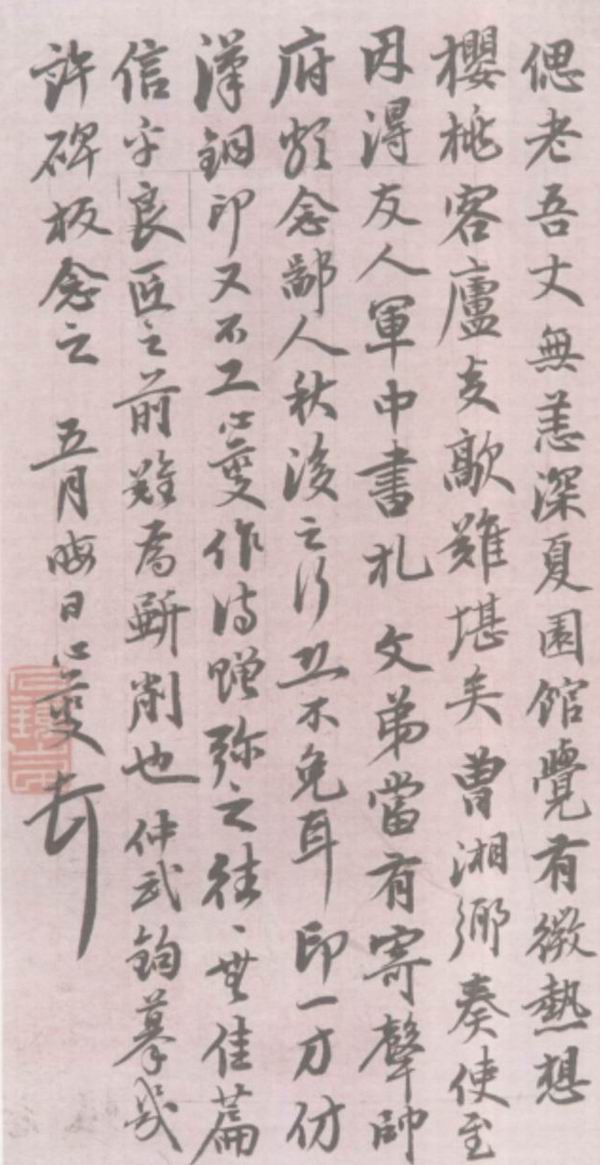 偲老吾丈無恙深夏園館覺有微熱想
櫻桃客廬炎歊難堪矣曹湘鄉奏使至
因得友人軍中書札文弟當有寄聲帥
府頗念鄙人秋後之行恐不免耳印一方仿
漢銅印又不工心夔作詩贈弥之往、無佳篇
信乎良匠之前難為斲削也仲武鉤摹幾
許碑板念之 五月晦日心夔